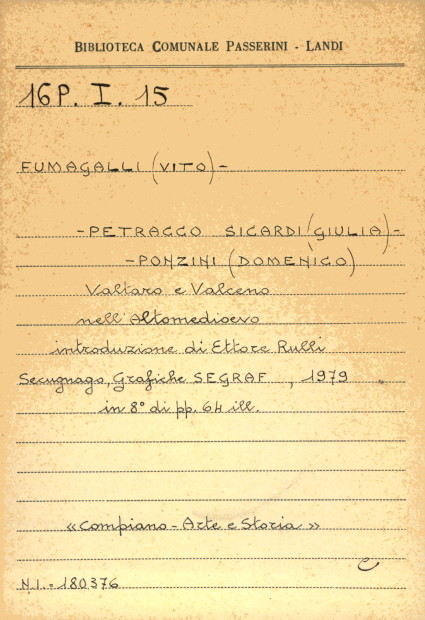 BIBLIOTECA COMUNALE PASSERINI - LANDI
16P. I. 15
FUMAGALLI (VITO) -
- PETRACCO SICARDI (GIULIA) -
- PONZINI (DOMENICO)
Valtaro e Valceno
nell'Altomedioevo
introduzione di Ettore Rulli
Secugnago, Grafiche SEGRAF , 1979 .
in 8° di pp. 64 ill.
«Compiano - Arte e Storia»
C
N.I. = 180376